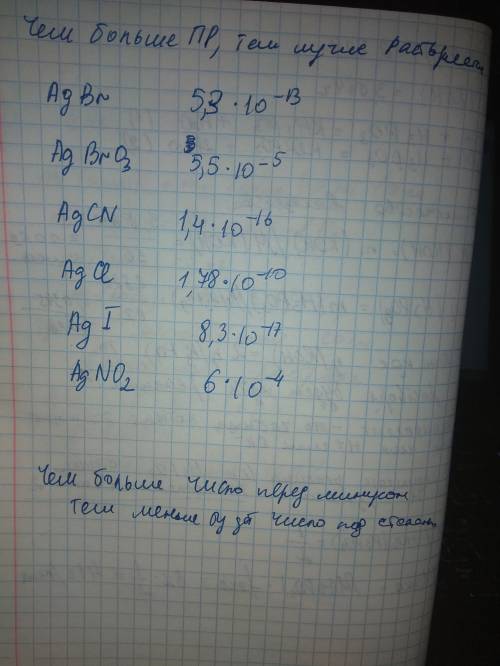 Чем больше ПР, тем лучше
AgBr 5,3·10⁻¹³
AgBrO₃ 5,5·10⁻⁵
AgCN 1,4·10⁻¹⁶
AgCl 1,78·10⁻¹⁰
AgI 8,3·10⁻¹⁷
AgNO₂ 6·10⁻⁴
Чем больше число перед минусом
тем меньше будет число под